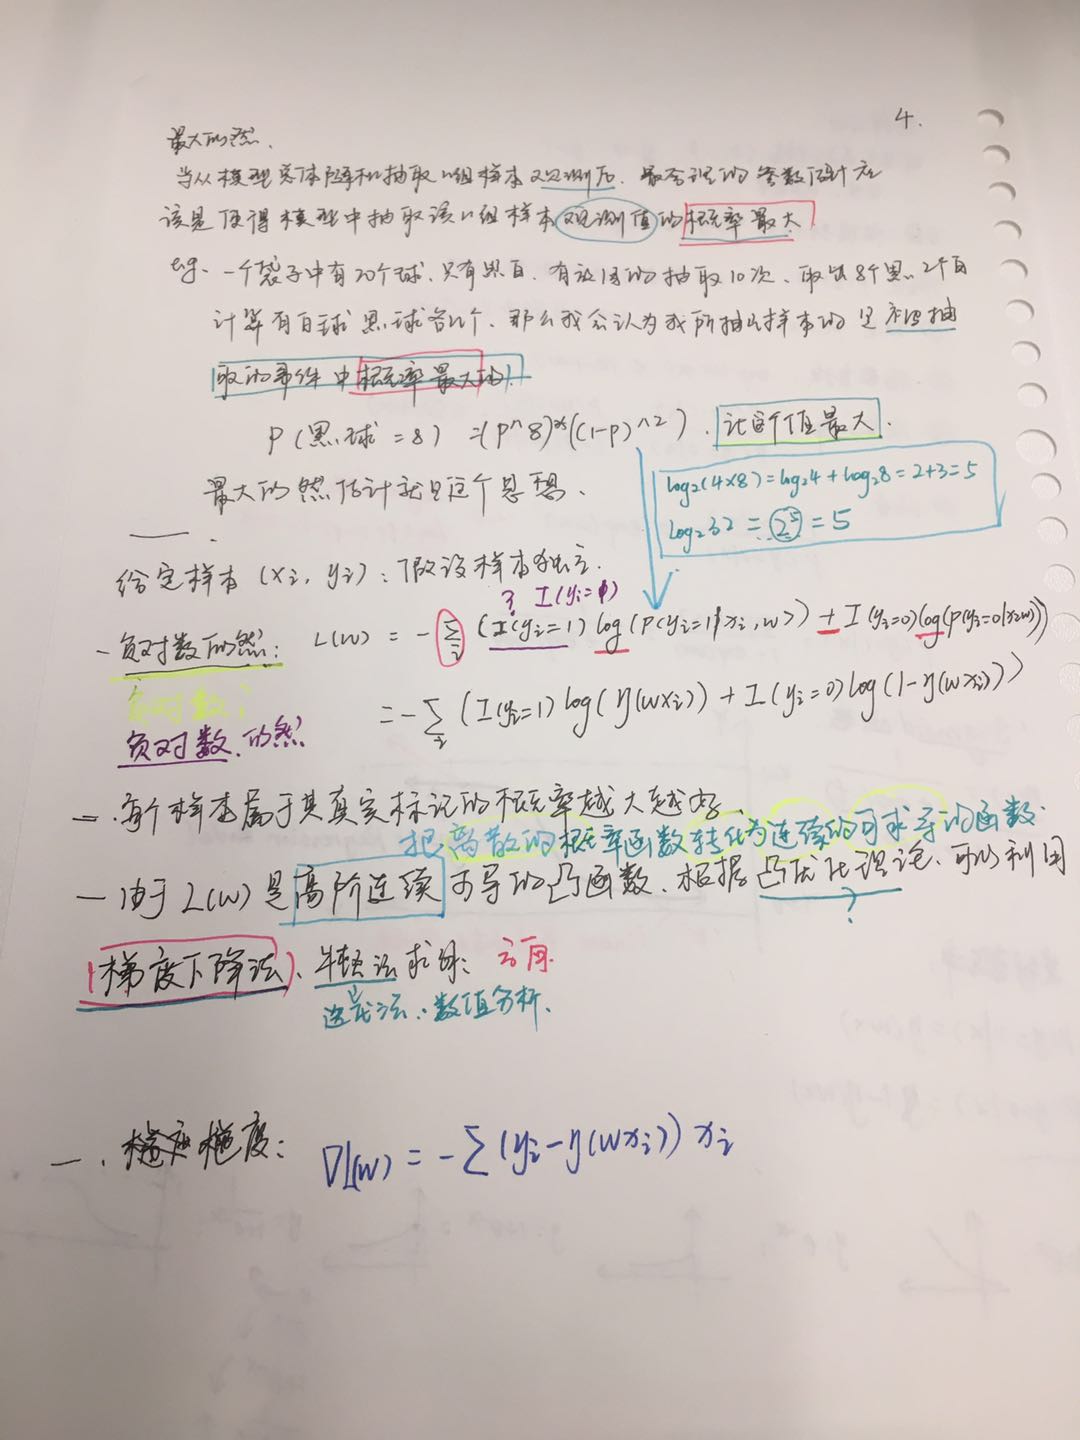 4.
最大似然.
当从模型总体随机抽取n组样本观测后,最合理的参数估计应
该是使得模型中抽取该n组样本观测值的概率最大
eg. 一个袋子中有20个球,只有黑白,有放回的抽取10次,取出8个黑,2个白
计算有白球黑球各几个,那么我会认为我所抽出样本的是被抽
取的事件中概率最大的.
P(黑球=8)=(p^8)*((1-p)^2). 让这个值最大
最大似然估计就是这个思想.
log₂(4×8)=log₂4+log₂8=2+3=5
log₂32=2⁵=5
给定样本(xi, yi):假设样本独立.
? I(yi=1)
-负对数似然: L(w) = -∑i (I(yi=1) log(P(yi=1|xi,w)) + I(yi=0) log(P(yi=0|xi,w)))
负对数?
= -∑i (I(yi=1) log(η(wxi)) + I(yi=0) log(1-η(wxi)))
负对数.似然
一.每个样本属于其真实标记的概率越大越好.
把离散的概率函数转化为连续的可求导的函数.
一由于L(w)是高阶连续可导的凸函数.根据凸优化理论.可以利用
?
(梯度下降法).牛顿法求解:
迭代法:数值分析.
一.梯度: ∇L(w) = -∑(yi-η(wxi))xi